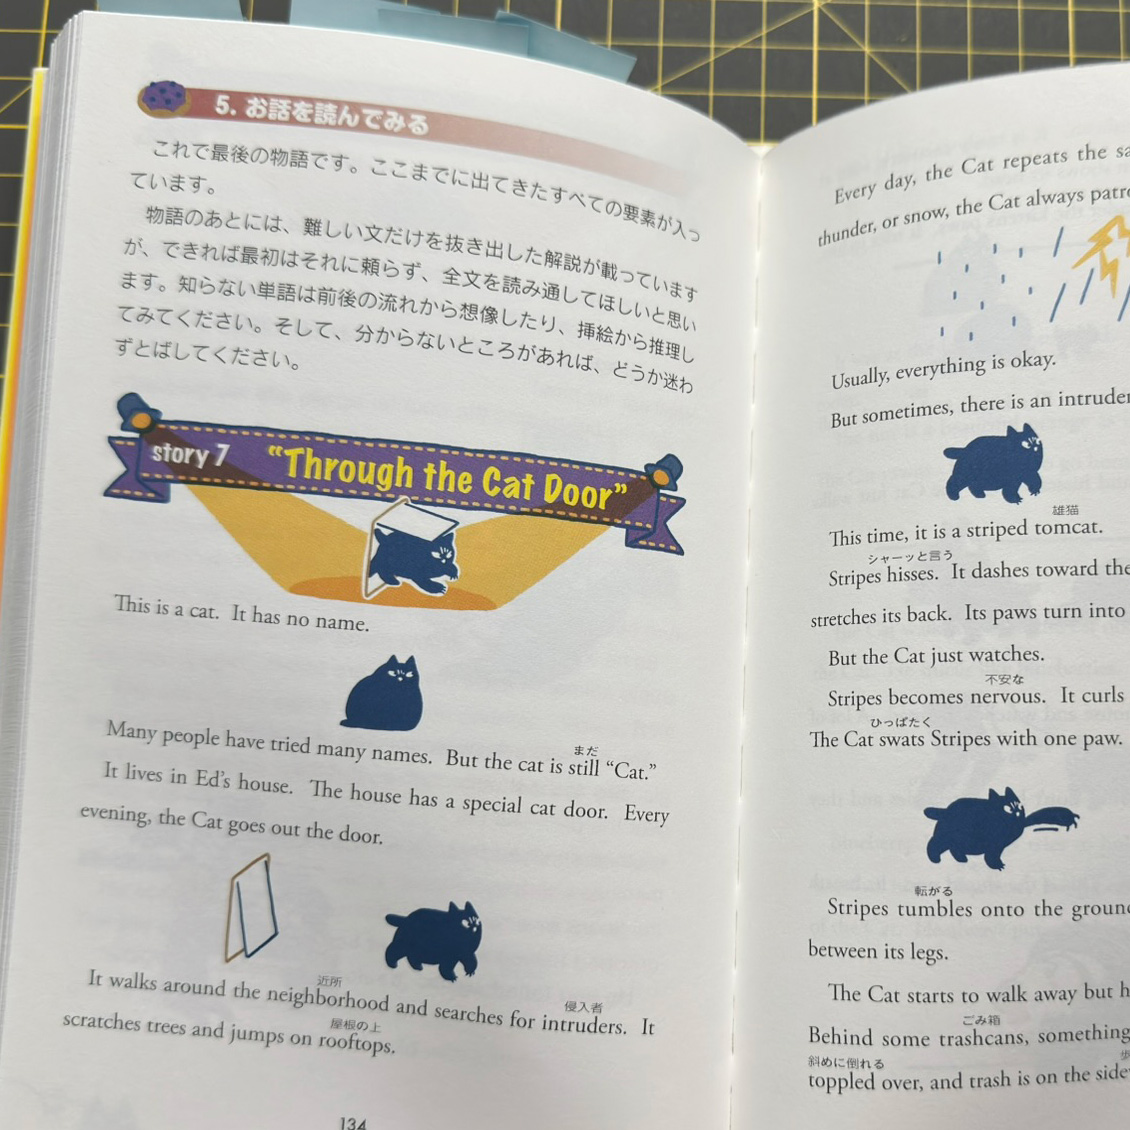 5. お話を読んでみる
これで最後の物語です。ここまでに出てきたすべての要素が入っ
ています。
物語のあとには、難しい文だけを抜き出した解説が載っています
が、できれば最初はそれに頼らず、全文を読み通してほしいと思い
ます。知らない単語は前後の流れから想像したり、挿絵から推理し
てみてください。そして、分からないところがあれば、どうか迷わ
ずとばしてください。
story 7 “Through the Cat Door”
This is a cat. It has no name.
まだ
Many people have tried many names. But the cat is still “Cat.”
It lives in Ed’s house. The house has a special cat door. Every
evening, the Cat goes out the door.
近所 侵入者
It walks around the neighborhood and searches for intruders. It
屋根の上
scratches trees and jumps on rooftops.
134
Every day, the Cat repeats the
thunder, or snow, the Cat always
Usually, everything is okay.
But sometimes, there is an intruder
雄猫
This time, it is a striped tomcat.
シャーッと言う
Stripes hisses. It dashes toward the
stretches its back. Its paws turn into
But the Cat just watches.
不安な
Stripes becomes nervous. It curls
ひっぱたく
The Cat swats Stripes with one paw.
転がる
Stripes tumbles onto the
between its legs.
The Cat starts to walk away but
ごみ箱
Behind some trashcans, something
斜めに倒れる
toppled over, and trash is on the